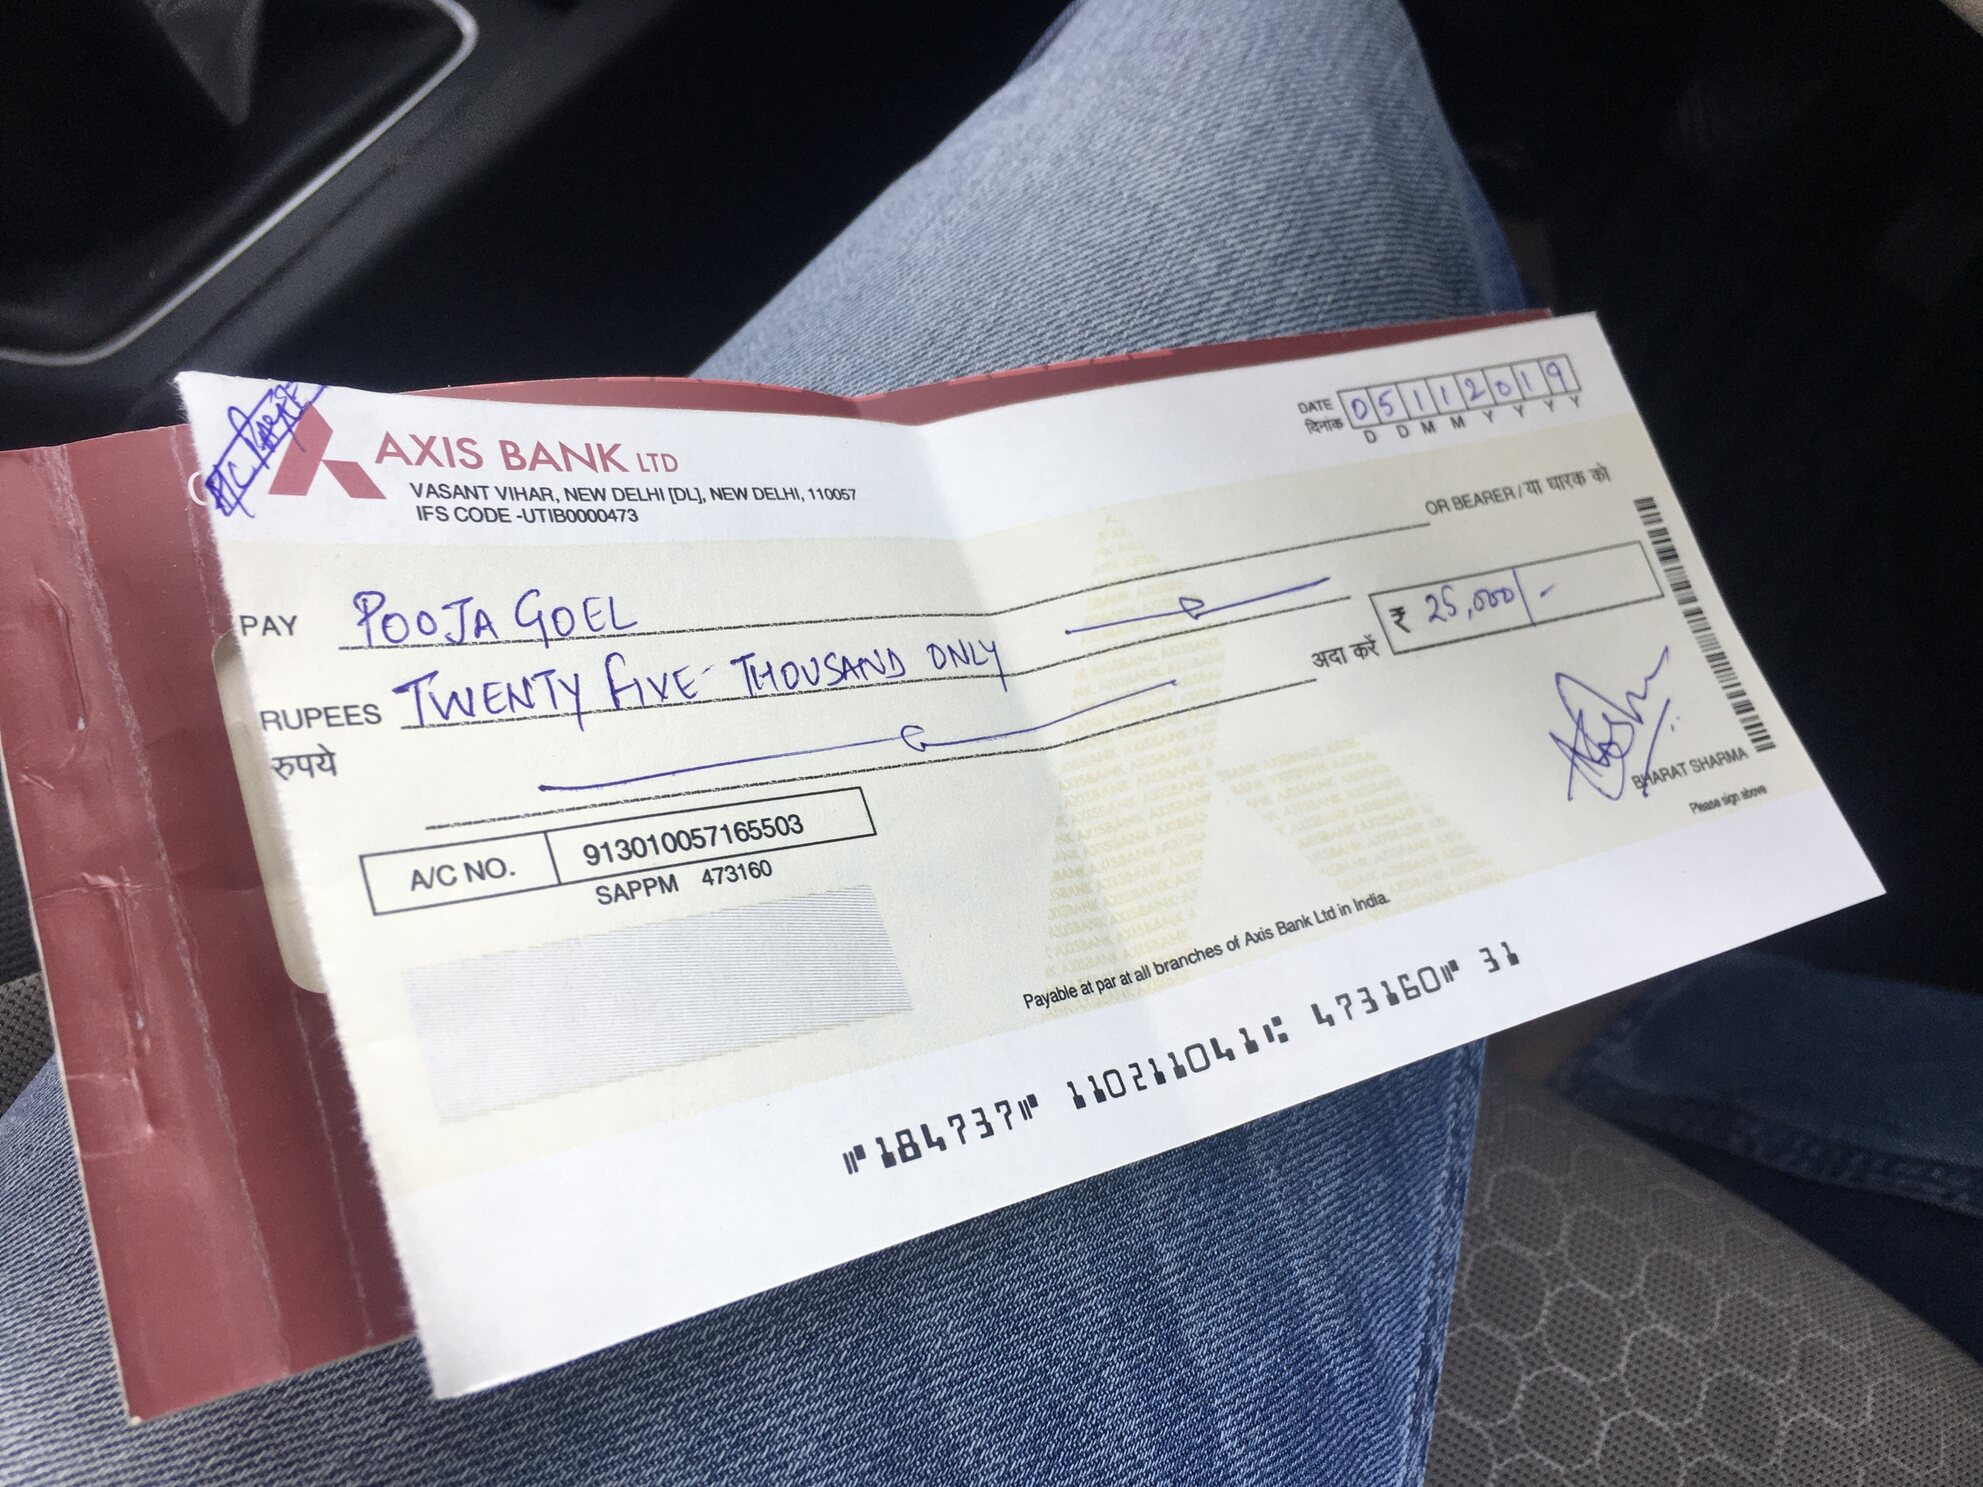 A/C Payee
AXIS BANK LTD
VASANT VIHAR, NEW DELHI [DL], NEW DELHI, 110057
IFS CODE -UTIB0000473
DATE 05112019
दिनांक D D M M Y Y Y Y
PAY POOJA GOEL OR BEARER / या धारक को
RUPEES TWENTY FIVE THOUSAND ONLY
रुपये अदा करें ₹ 25,000/-
A/C NO. 913010057165503
SAPPM 473160
BHARAT SHARMA
Please sign above
Payable at par at all branches of Axis Bank Ltd in India.
⑈184737⑈ 110211041⑆ 473160⑈ 31